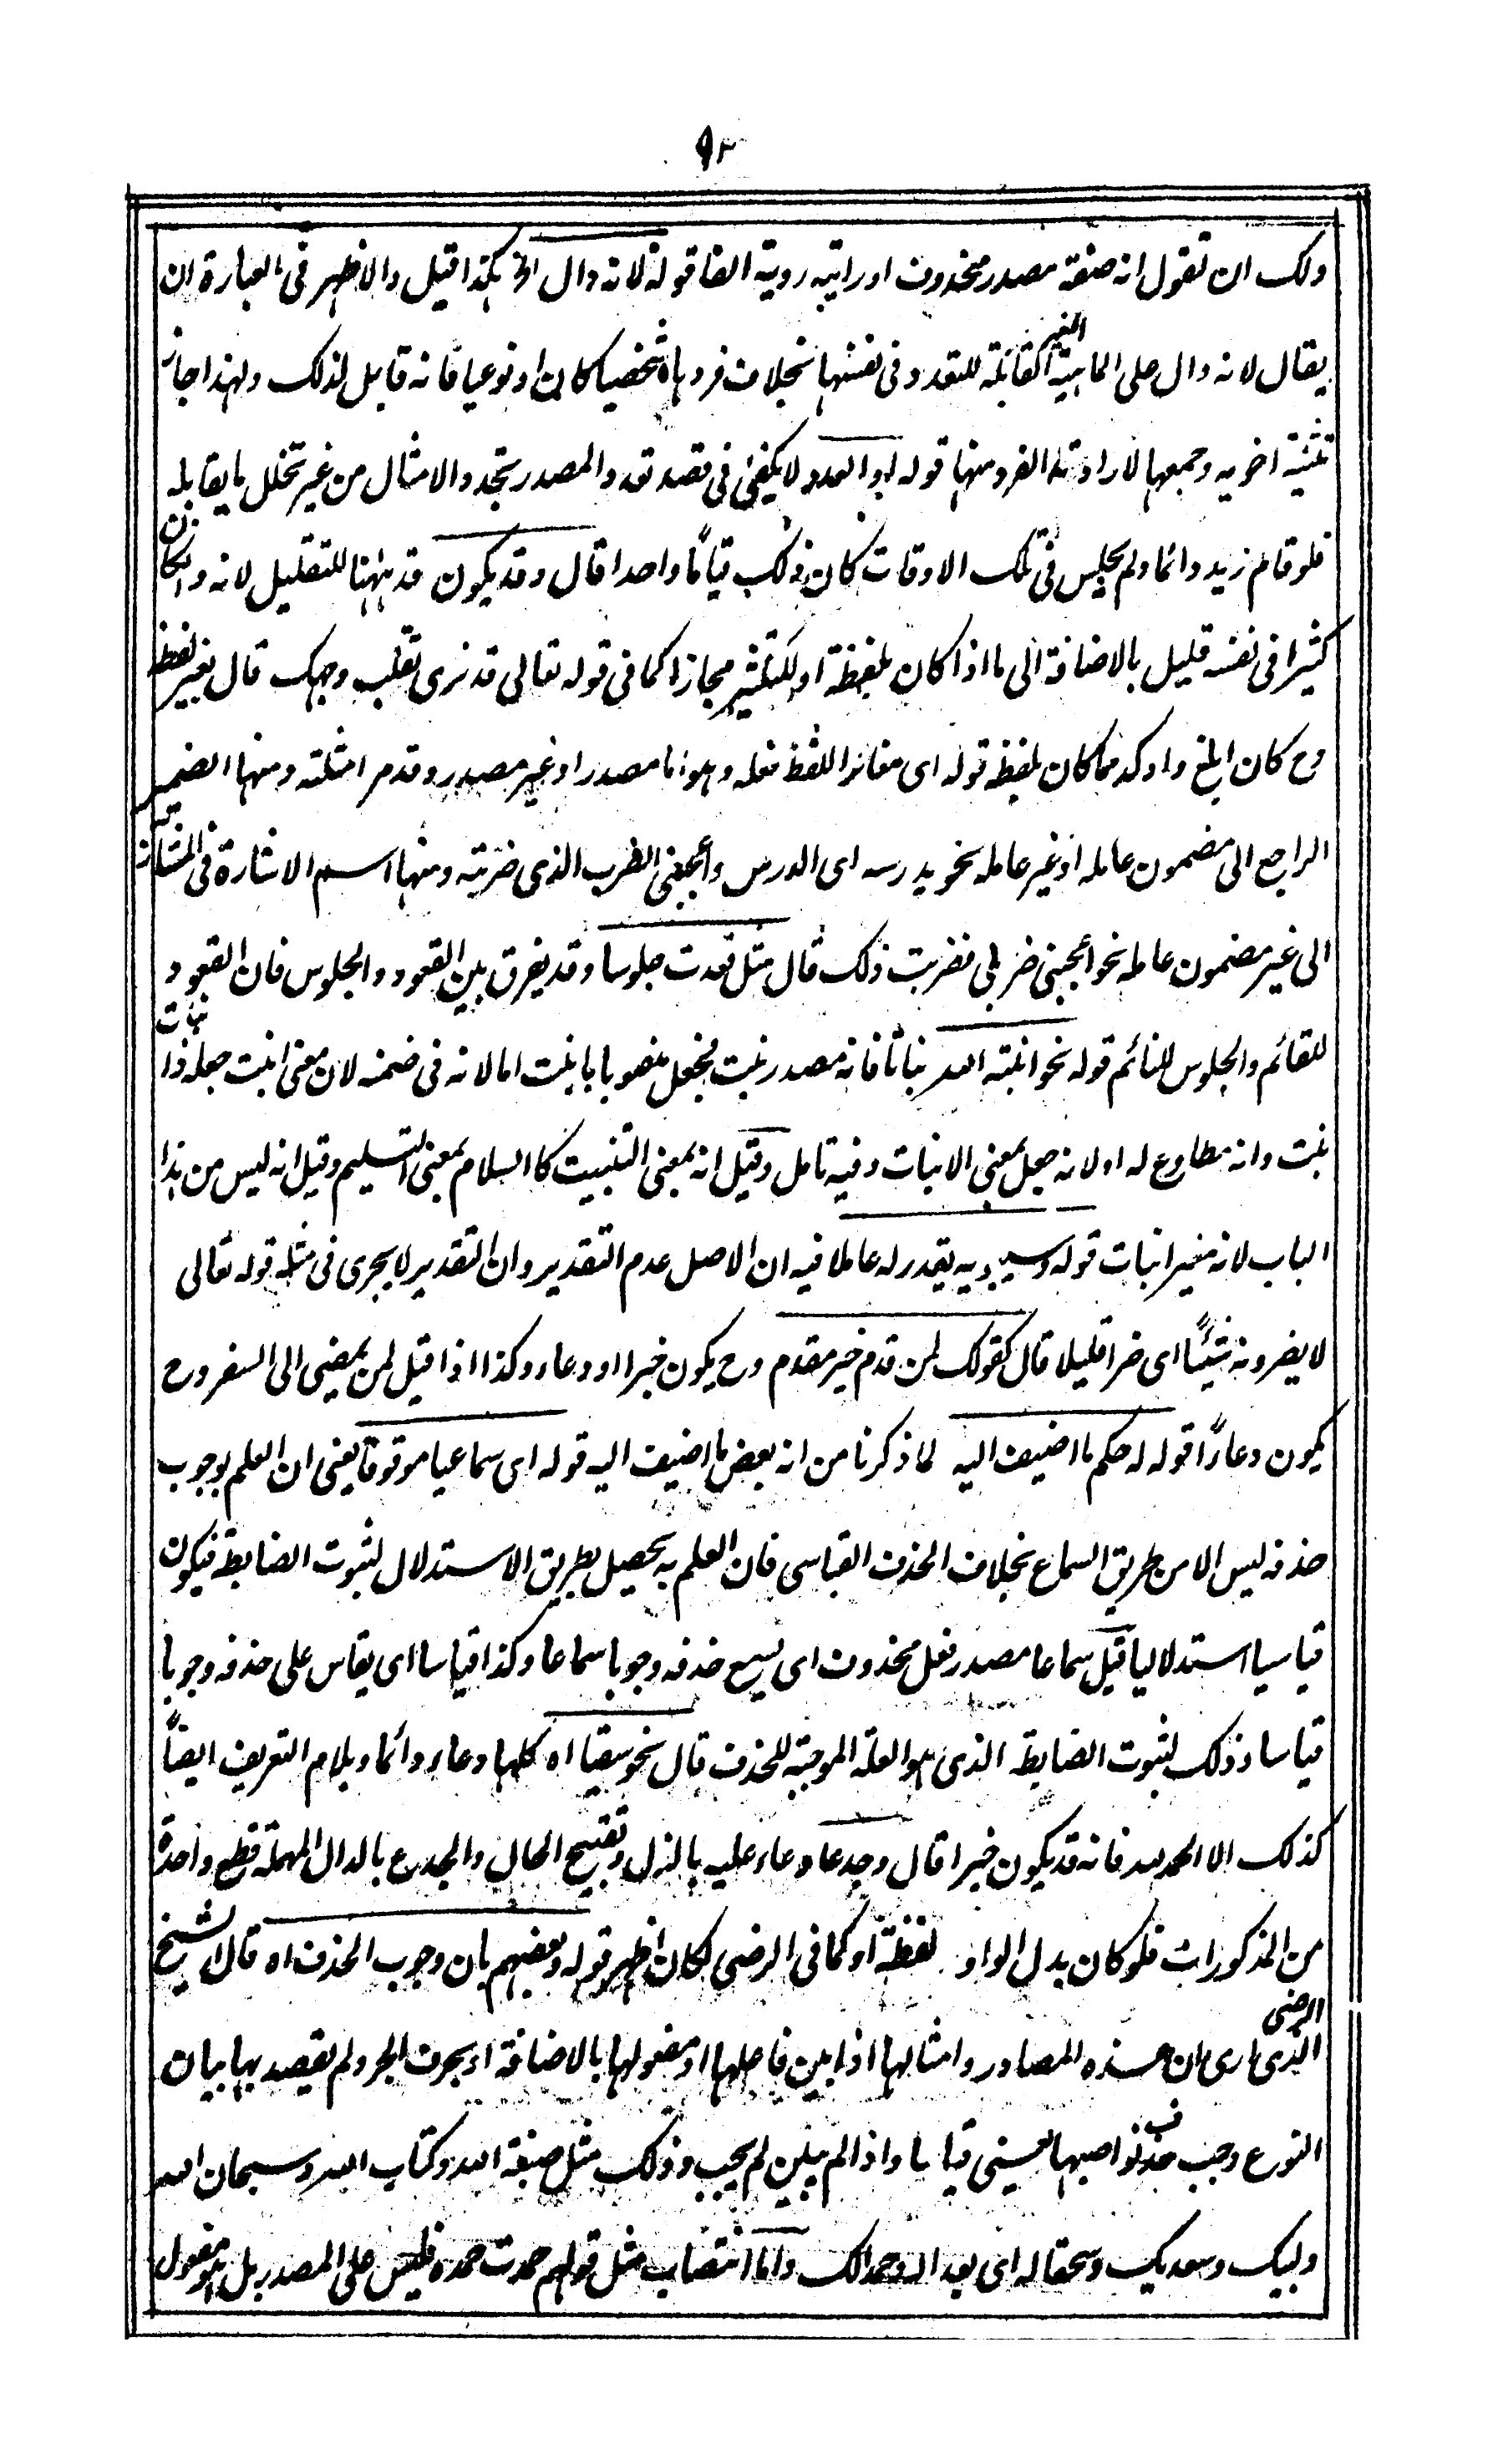 ٩٣
ولك ان تقول انه صفة مصدر محذوف او رايته روية الفا قوله لانه دال الخ هكذا قيل والاظهر فى العبارة ان
يقال لانه دال على الماهية الغير القابلة للتعدد فى نفسها بخلاف فردها شخصيا كان او نوعيا فانه قابل لذلك ولهذا جاز
تثنية اخويه وجمعهما لارادة الفرد منها قوله او العدد لا يكفى فى قصد تعدد المصدر تجدد الامثال من غير تخلل ما يقابله
فلو قام زيد دائما ولم يجلس فى تلك الاوقات كان ذلك قياما واحدا قال وقد يكون قد ههنا للتقليل لانه وان كان
كثيرا فى نفسه قليل بالاضافة الى ما اذا كان بلفظه او للتكثير مجازا كما فى قوله تعالى قد نرى تقلب وجهك قال بغير لفظه
وح كان ابلغ واوكد مما كان بلفظه قوله اى مغايرا للفظ فعله وهو اما مصدر او غير مصدر وقد مر امثلته ومنها الضمير
الراجع الى مضمون عامله او غير عامله نحو يدرسه اى الدرس واعجبنى الضرب الذى ضربته ومنها اسم الاشارة فى المشار به
الى غير مضمون عامله نحو اعجبنى ضربى فضربت ذلك قال مثل قعدت جلوسا وقد يفرق بين القعود والجلوس فان القعود
للقائم والجلوس للنائم قوله نحو انبته الله نباتا فانه مصدر نبت فجعل منصوبا بانبت اما لانه فى ضمنه لان معنى انبت جعله ذا نبات
نبت وانه مطاوع له او لانه جعل بمعنى الانبات وفيه تامل وقيل انه بمعنى التنبيت كالسلام بمعنى التسليم وقيل انه ليس من هذا
الباب لانه مغير انبات قوله وسيبويه يقدر له عاملا فيه ان الاصل عدم التقدير وان التقدير لا يجرى فى مثله قوله تعالى
لا يضرونه شيئًا اى ضرا قليلا قال كقولك لمن قدم خير مقدم وح يكون خبرا او دعاء وكذا اذا قيل لمن يمضى الى السفر وح
يكون دعاءً اقوله له حكم ما اضيف اليه لما ذكرنا من انه بعض ما اضيف اليه قوله اى سماعيا موقوفا يعنى ان العلم بوجوب
حذفه ليس الا من طريق السماع بخلاف الحذف القياسى فان العلم به يحصل بطريق الاستدلال لثبوت الضابطة فيكون
قياسيا استدلاليا قيل سماعا مصدر فعل محذوف اى يسمع حذفه وجوبا سماعا وكذا قياسا اى يقاس على حذفه وجوبا
قياسا وذلك لثبوت الضابطة الذى هو العلة الموجبة للحذف قال نحو سقيا اه كلها دعاء دائما وبلام التعريف ايضًا
كذلك الا الحمد لله فانه قد يكون خبرا قال وجدعا دعاء عليه بالذل وتقبيح الحال والجدع بالدال المهملة قطع واحدة
من المذكورات فلو كان بدل الواو لفظة او كما فى الرضى لكان اظهر قوله وبعضهم بان وجوب الحذف اه قال الشيخ
الرضى الذى ارى ان هذه المصادر وامثالها اذا بين فاعلها او مفعولها بالاضافة او بحرف الجر ولم يقصد بها بيان
النوع وجب حذف نواصبها يعنى قياسا واذا لم يبين لم يجب وذلك مثل صبغة الله وكتاب الله وسبحان الله
ولبيك وسعديك وسحقا له اى بعدا له وحمدا لك واما انتصاب مثل قولهم حمدت حمده فليس على المصدر بل هو مفعول